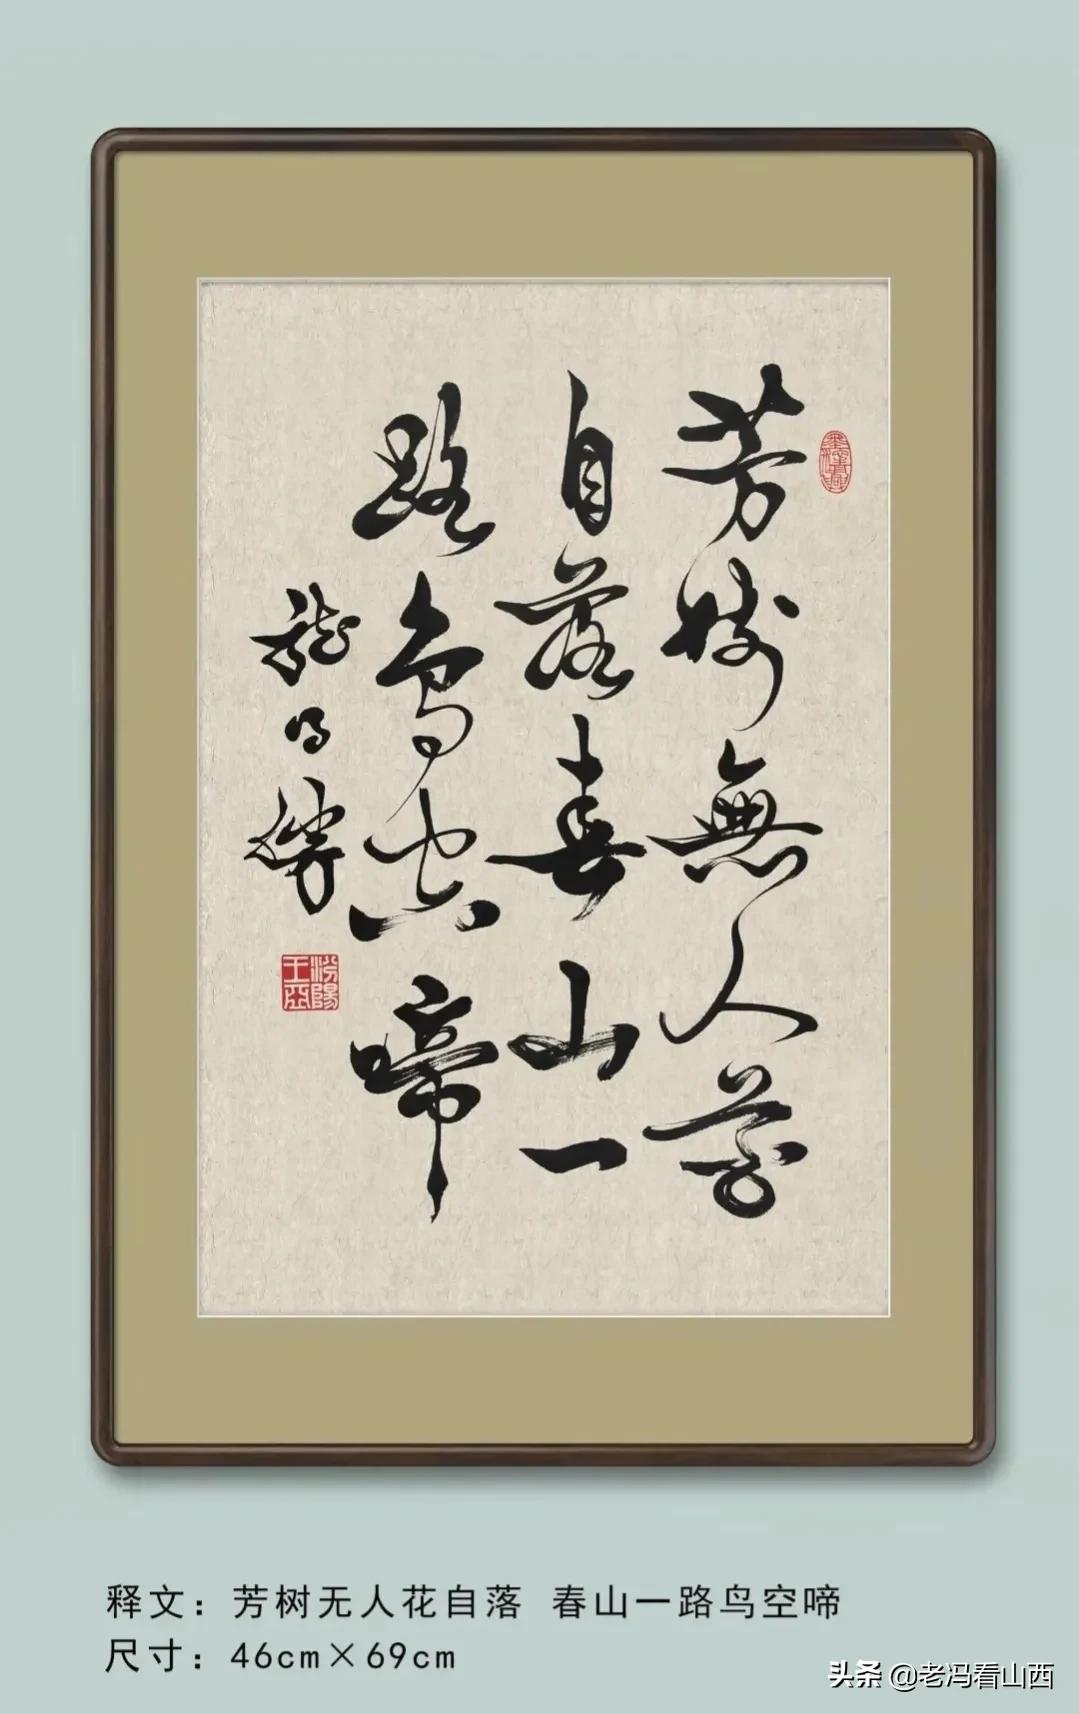 芳樹無人花
自落春山一
路鳥空啼
汾陽王亞
释文：芳树无人花自落 春山一路鸟空啼
尺寸：46cm×69cm
头条 @老冯看山西